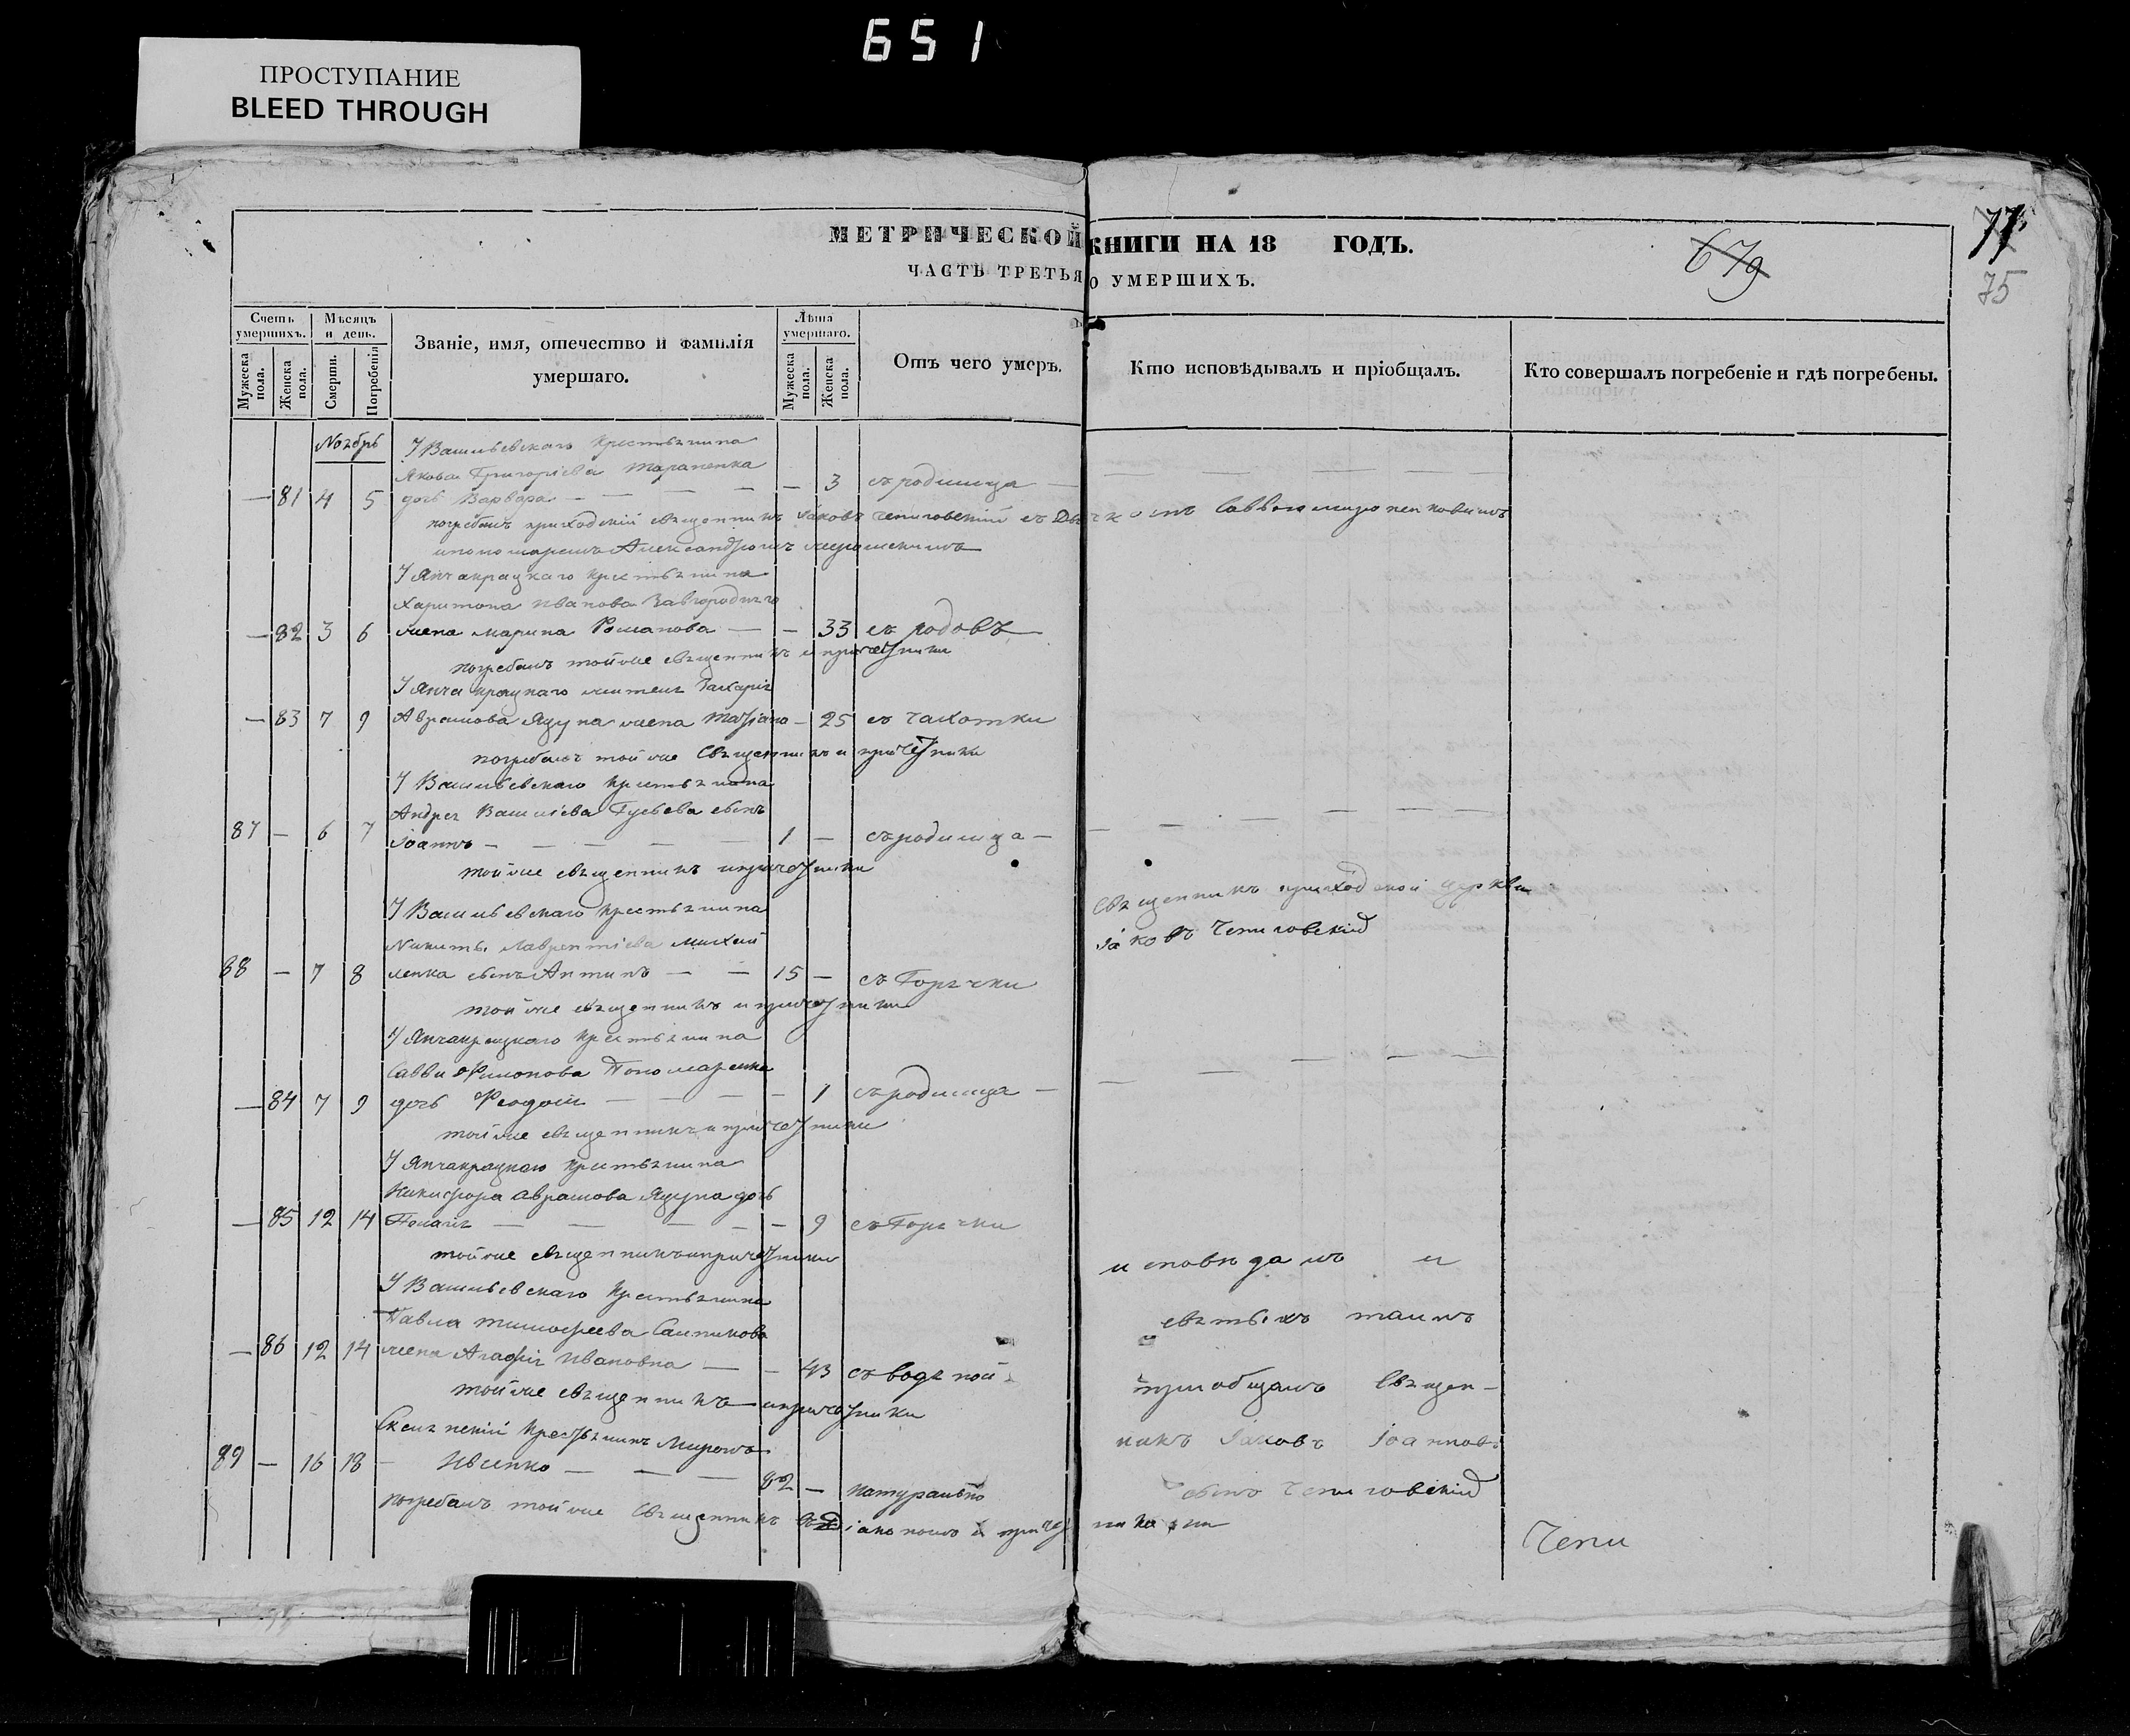 651
ПРОСТУПАНИЕ
BLEED THROUGH
МЕТРИЧЕСКОЙ КНИГИ НА 18 ГОДЪ.
ЧАСТЬ ТРЕТЬЯ О УМЕРШИХЪ.
679
77
75
Счетъ умершихъ.
Мужеска пола.
Женска пола.
Мѣсяцъ и день.
Смерти.
Погребенія
Званіе, имя, отечество и фамилія умершаго.
Лѣта умершаго.
Мужеска пола.
Женска пола.
Отъ чего умеръ.
Кто исповѣдывалъ и пріобщалъ.
Кто совершалъ погребеніе и гдѣ погребены.
Ноябрь
Васильевскаго крестьянина
Якова Григоріева Тараненка
— 81 4 5 дочь Варвара — — — — — 3 съ родимца —
погребалъ приходскій священникъ Іаковъ Чепиговскій съ
и пономаремъ Александромъ
Янчакрацкаго крестьянина
Харитона Иванова Завгороднего
— 82 3 6 жена Марина Романова — — 33 съ родовъ
погребалъ тойже священникъ и причетники
Янчакрацкаго жителя Захарія
— 83 7 9 Аврамова Яцуна жена — 25 съ чахотки
погребалъ тойже священникъ и причетники
Васильевскаго крестьянина
Андрея Василіева Гусева сынъ
87 — 6 7 Іоаннъ — — — — — 1 — съ родимца —
тойже священникъ и причетники
Васильевскаго крестьянина
Никиты Лаврентіева Михай
88 — 7 8 ленка сынъ Антипъ — — 15 — съ Горячки
священникъ приходской церкви
Іаковъ Чепиговскій
тойже священникъ и причетники
Янчакрацкаго крестьянина
Саввы Филонова Пономаренка
— 84 7 9 дочь — — — — 1 съ родимца —
тойже священникъ и причетники
Янчакрацкаго крестьянина
Никифора Аврамова Яцуна дочь
— 85 12 14 Пелагія — — — — — 9 съ Горячки
тойже священникъ и причетники
Васильевскаго крестьянина
Павла Тимофеева
— 86 12 14 жена Агафія Ивановна — — 43 съ водяной
тойже священникъ и причетники
крестьянинъ Миронъ
89 — 16 18 — Ивенко — — — 82 — натурально
погребалъ тойже священникъ съ діакономъ и причетниками
исповѣдалъ и
святыхъ таинъ
приобщалъ Священ-
никъ Іаковъ Іоаннов
сынъ Чепиговскій
Чепи